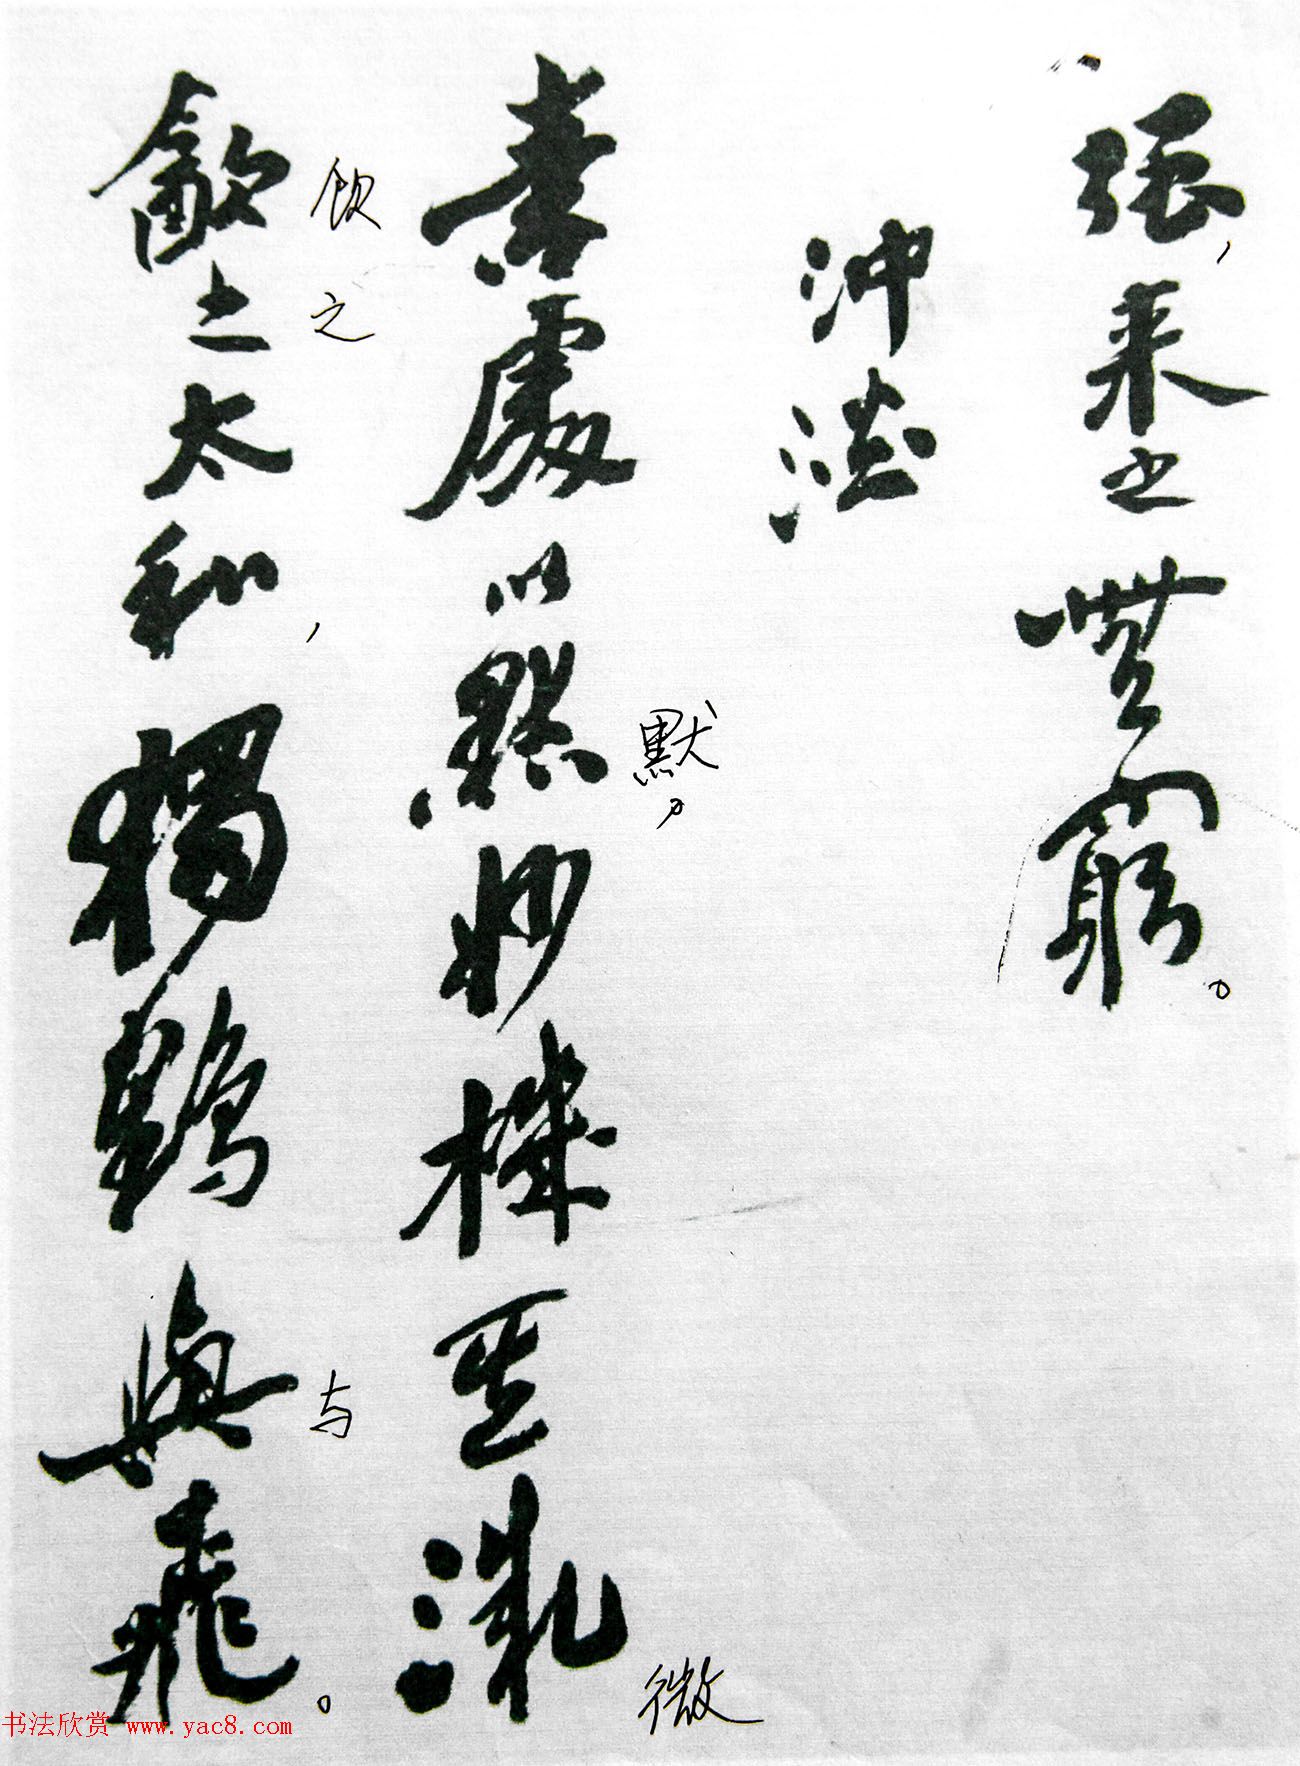 强，来之無窮。
冲澹
素處以默妙機其微
默，
微
飲之太和，獨鶴與飛。
饮之
与
书法欣赏 www.yac8.com